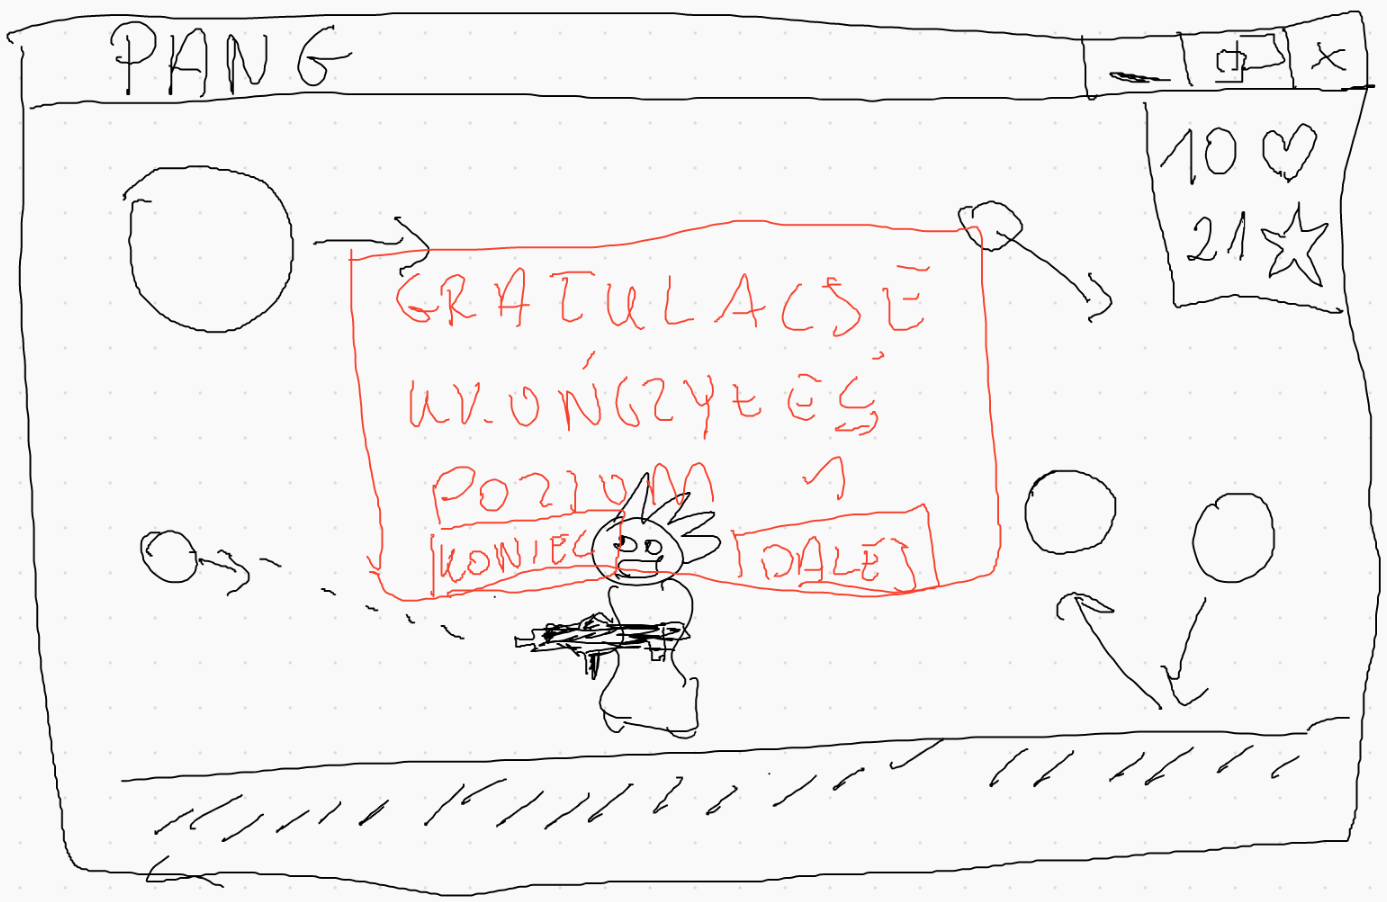 PANG
10
21
GRATULACJE
UKOŃCZYŁEŚ
POZIOM 1
KONIEC DALEJ